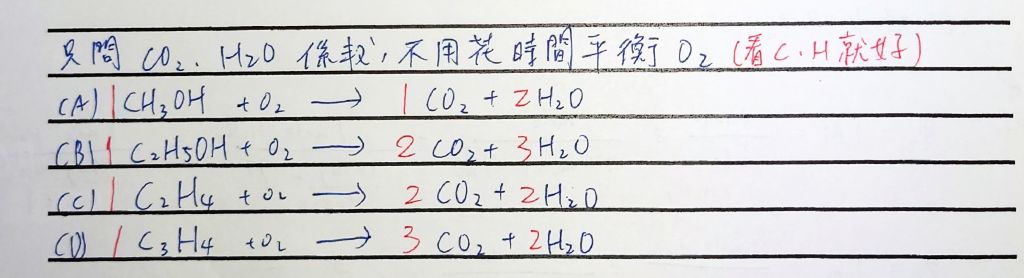 只問 CO₂、H₂O 係數,不用花時間平衡 O₂ (看C、H就好)
(A) 1 CH₃OH + O₂ → 1 CO₂ + 2H₂O
(B) 1 C₂H₅OH + O₂ → 2 CO₂ + 3H₂O
(C) 1 C₂H₄ + O₂ → 2 CO₂ + 2H₂O
(D) 1 C₃H₄ + O₂ → 3 CO₂ + 2H₂O